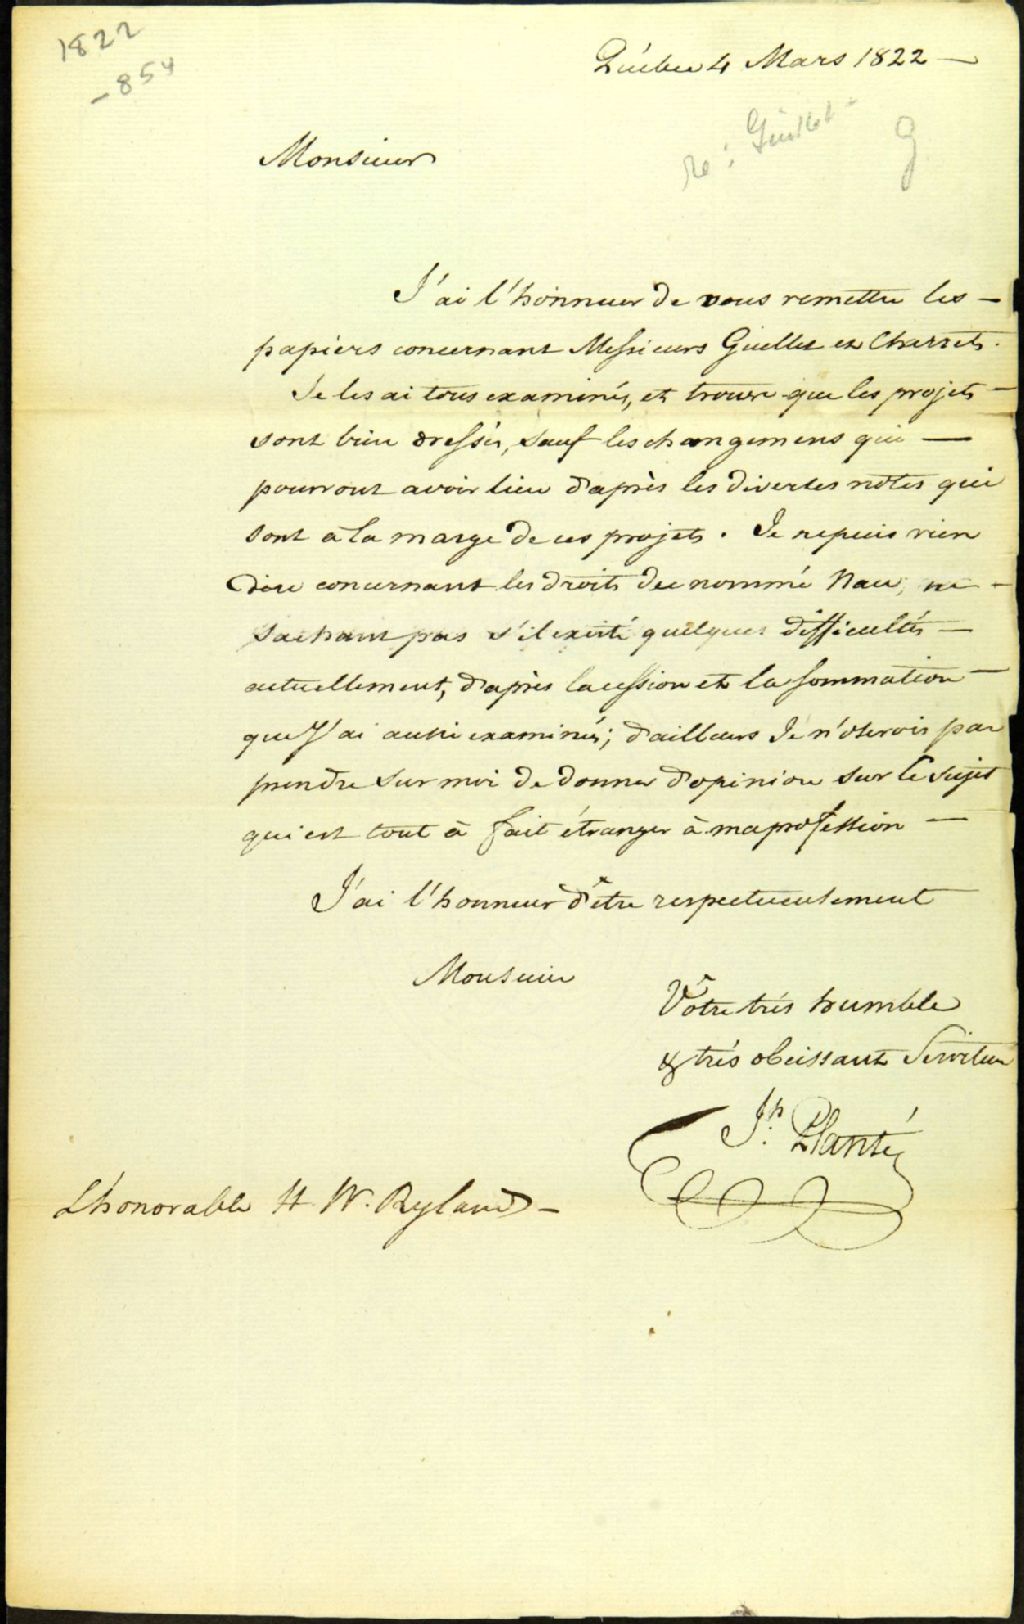 1822
-854
Québec 4 Mars 1822 —
re: Guillet
g
Monsieur
J'ai l'honneur de vous remettre les —
papiers concernant Messieurs Guillet et Charrets.
Je les ai tous examinés, et trouve que les projets —
sont bien dressés, sauf les changemens qui —
pourront avoir lieu d'après les diverses notes qui
sont à la marge de ces projets. Je ne puis rien
dire concernant les droits du nommé Nau, ne —
sachant pas s'il existe quelques difficultés —
actuellement, d'après la cession et la sommation —
que J'ai aussi examinés; d'ailleurs Je n'oserois pas
prendre sur moi de donner d'opinion sur le sujet
qui est tout à fait étranger à ma profession —
J'ai l'honneur d'être respectueusement
Monsieur
Vôtre très humble
& très obeissant Serviteur
Jh. Planté
L'honorable H. W. Ryland —